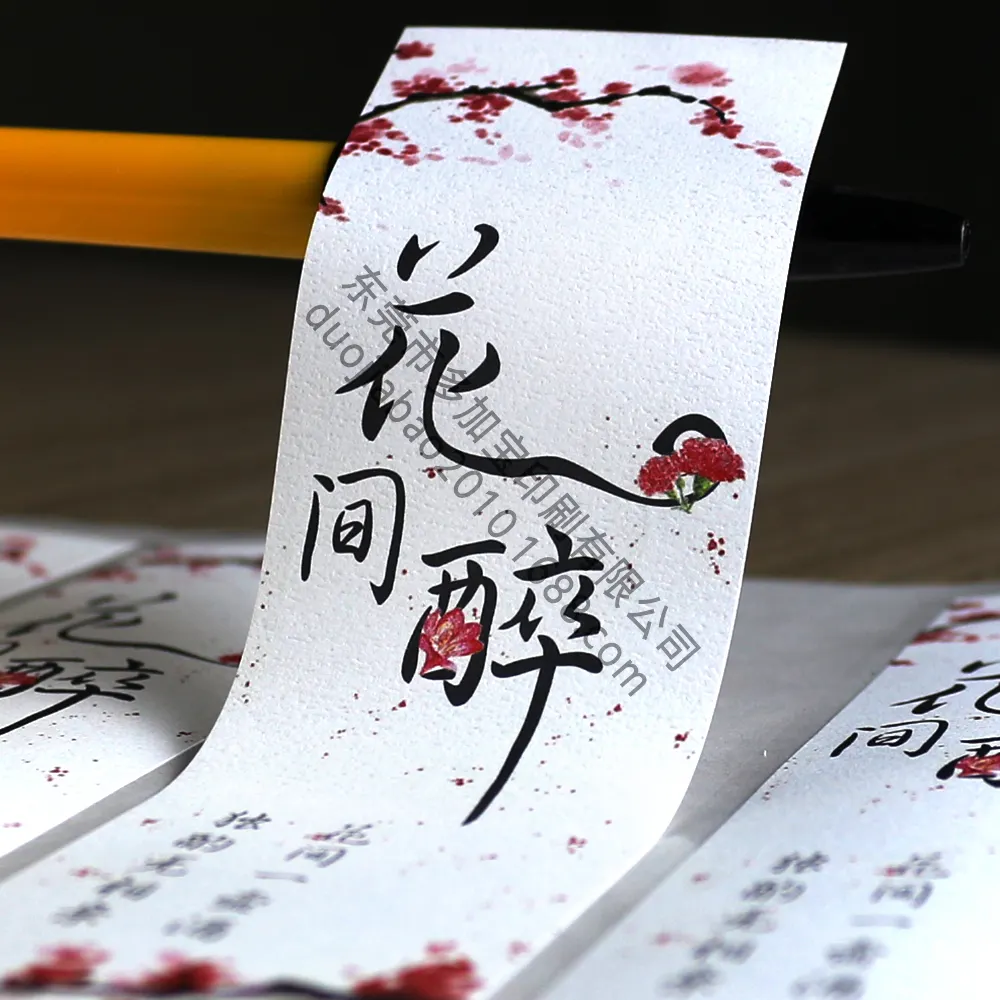 花间醉
花间一壶酒
独酌无相亲
东莞市多加宝印刷有限公司
duojiabao2010.1688.com
花醉
花间醉
花间一壶酒
独酌无相亲